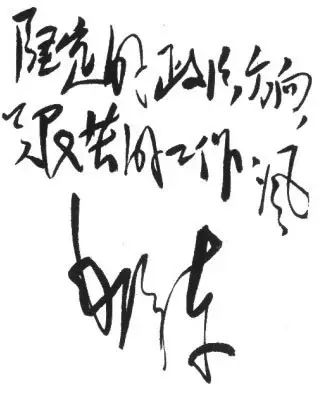 坚定的政治方向，
艰苦的工作作风